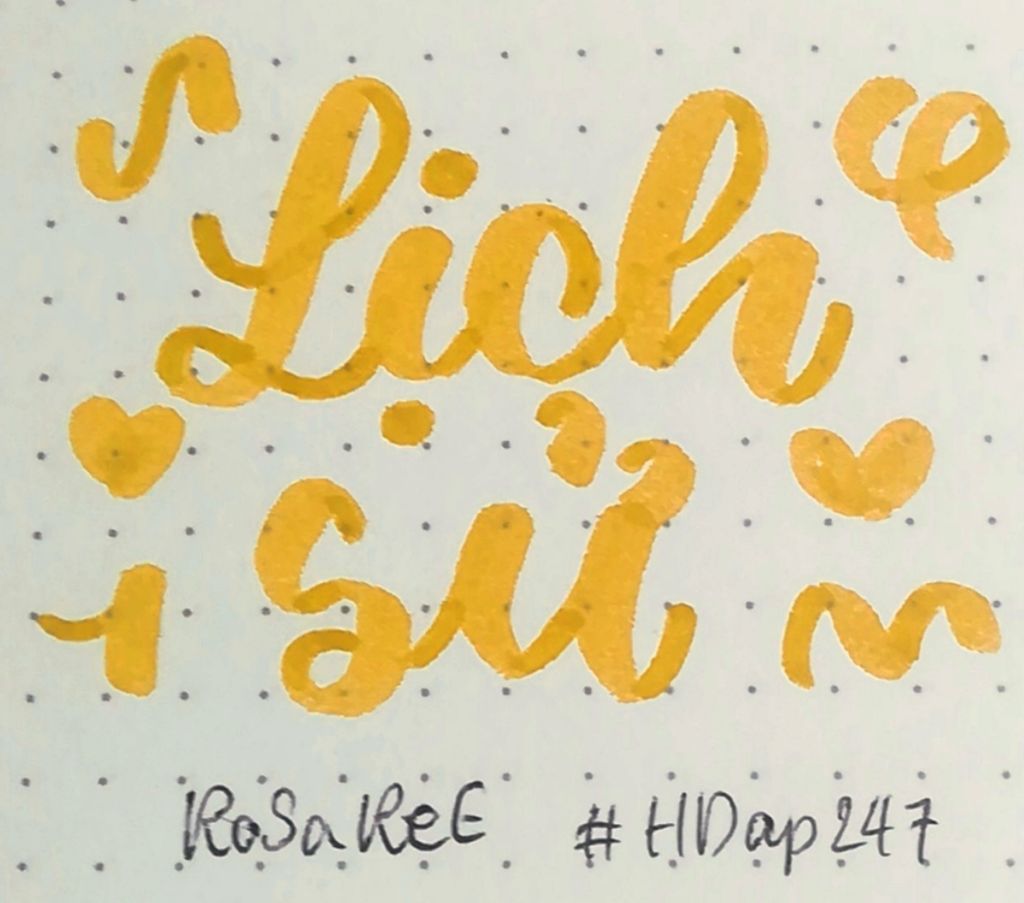 Lịch
sử
RoSa ReE #HDap247